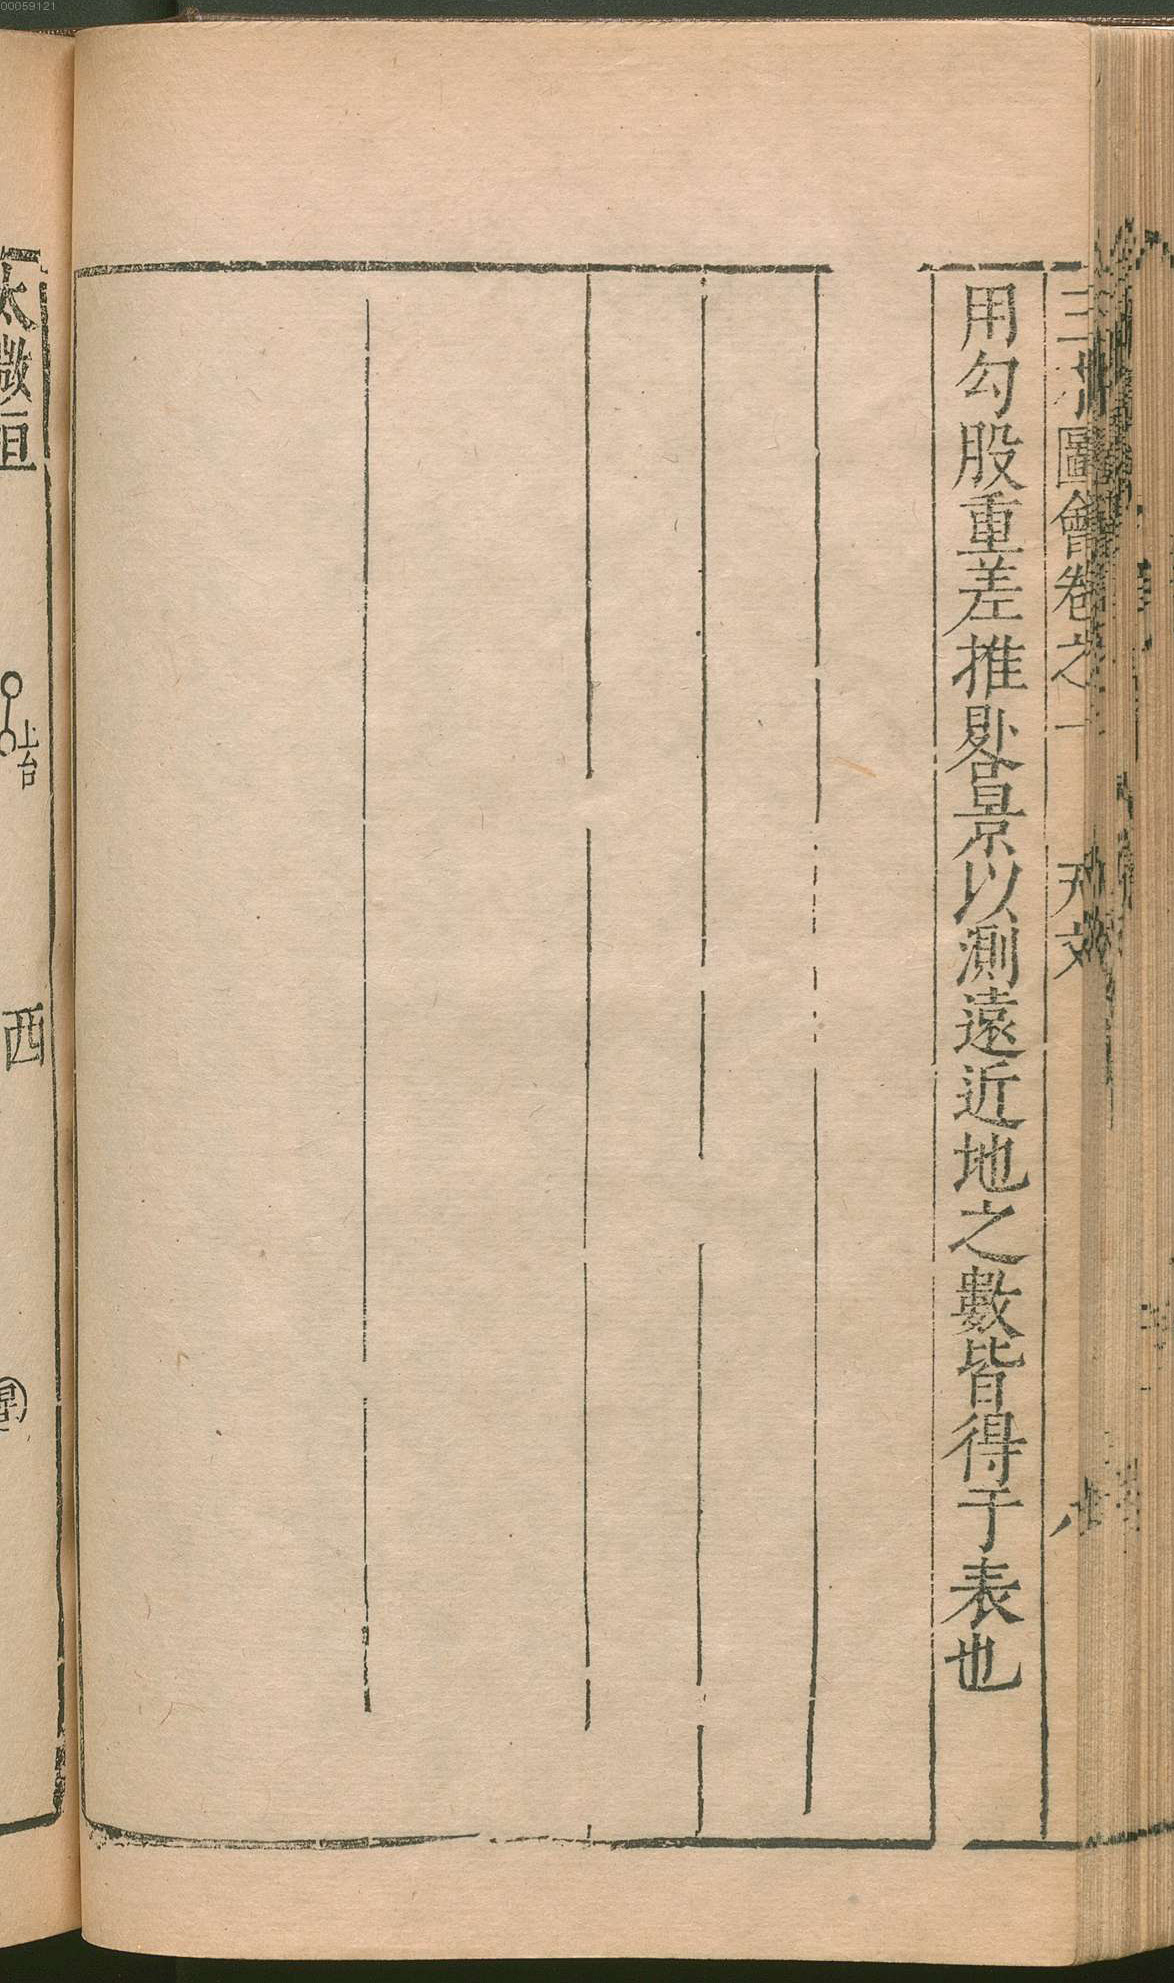 三才圖會卷之一 天文 八
用勾股重差推晷景以測遠近地之數皆得于表也
太微垣
上台
西
00059121